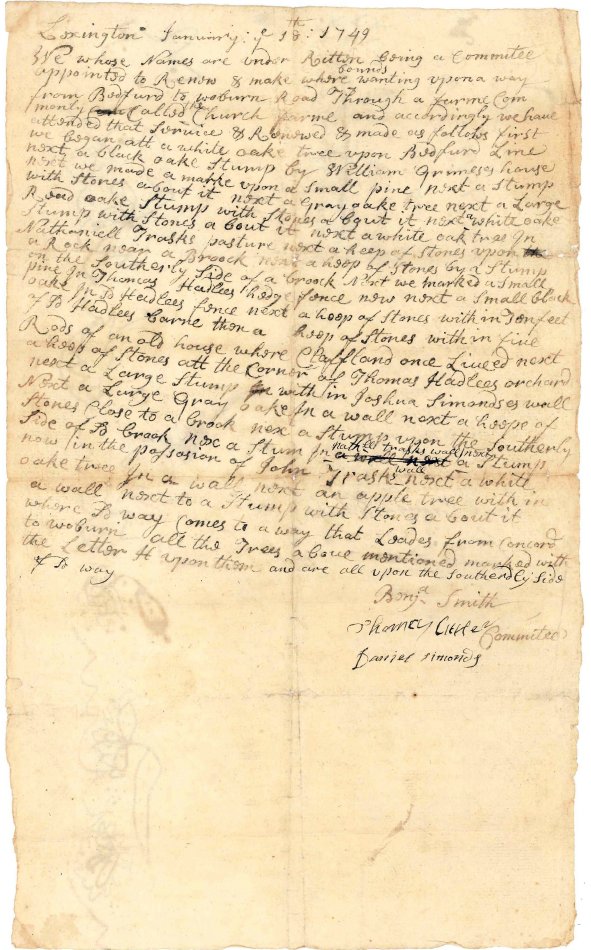 Lexington January: ye 18th: 1749
We whose Names are under Ritten being a Commitee
appointed to Renew & make bounds where wanting upon a way
from Bedfurd to woburn Road Through a farme Com
monly Called Church farme and accordingly we have
attended that Service & Renewed & made as follows first
we began att a while oake tree upon Bedfurd Line
next a black oake Stump by William Grimeses house
next we made a marke upon a Small pine next a Stump
with Stones about it next a Gray oake tree next a Large
Read oake Stump with Stones a bout it next a white oake
Stump with Stones a bout it next a white oak tree In
Nathaniell Trasks pasture next a heep of Stones upon
a Rock near a Broock next a heep of Stones by a Stump
on the Southerly Side of a brook Next we marked a Small
pine In Thomas Hadlees hedge fence now next a Small black
oake In Sd Hadlees fence next a heep of Stones with in Ten feet
of Sd Hadlees barne then a heep of Stones with in five
Rods of an old house where Chaffland once Liueed next
a heep of Stones att the Corner of Thomas Hadlees orchard
next a Large Stump with in Joshua Simondses wall
Next a Large Gray oake In a wall next a heepe of
Stones Close to a brook next a Stump upon the Southerly
Side of Sd Brook nex a Stum In nathll Trasks wall next a Stump
now in the possosion of John Trasks wall next a whit
oake tree In a wall next an apple tree with in
a wall next to a Stump with Stones a bout it
where Sd way Comes to a way that Leades from Concord
to woburn all the Trees a boue mentioned marked with
the Letter H upon them and are all upon the Southerdly Side
of Sd way
Benja Smith
Thomas Cutler Committee
Daniel Simonds